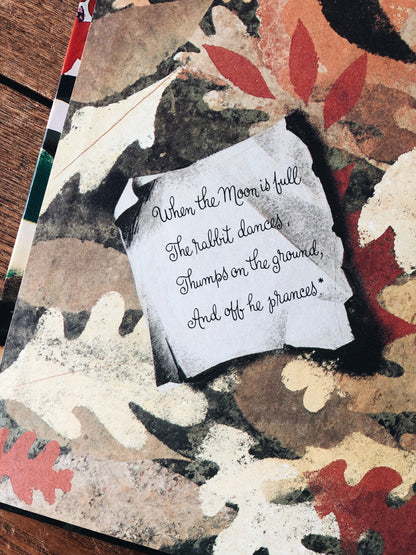 When the Moon is full
The rabbit dances,
Thumps on the ground,
And off he prances.*